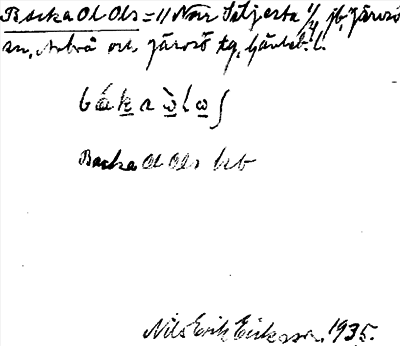 Backa Ol Ols = 11 Norr Stjerta 1/4 jb, Järvsö
sn, Arbrå och Järvsö tg, Gävleb. l.
bákaὼlωʃ
Backa Ol Ols hb
Nils Erik Eriksson. 1935.